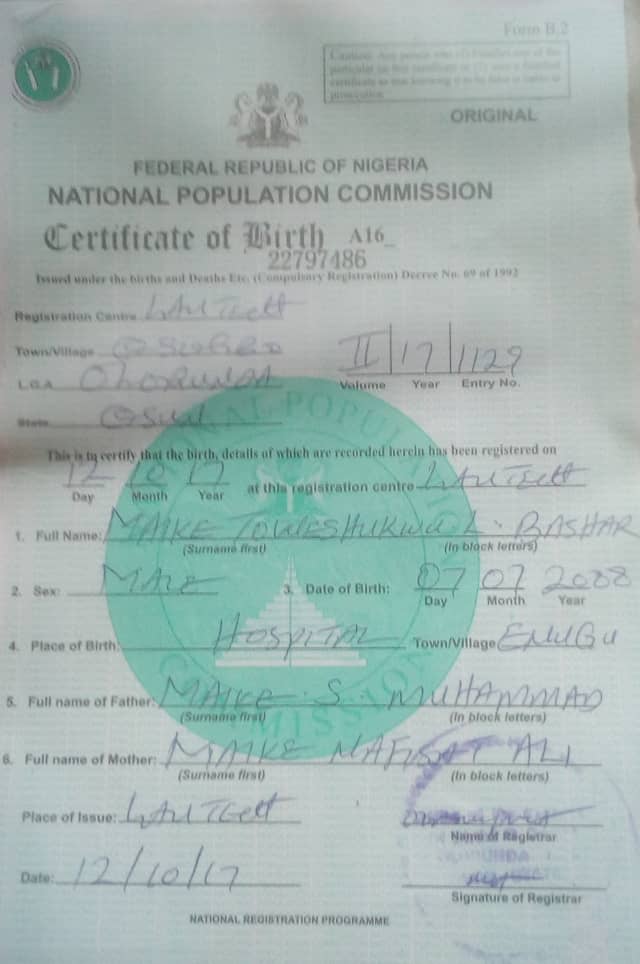 Form B.2
Caution: Any person who (1) falsifies any of the
particular on this certificate or (2) uses a falsified
certificate as true knowing it to be false is liable to
prosecution
ORIGINAL
FEDERAL REPUBLIC OF NIGERIA
NATIONAL POPULATION COMMISSION
Certificate of Birth A16_
22797486
Issued under the births and Deaths Etc. (Compulsory Registration) Decree No. 69 of 1992
Registration Centre
Town/Village OSOGBO II 17 1129
L.G.A OLORUNDA Volume Year Entry No.
State OSUN
NATIONAL POPULATION COMMISSION
This is to certify that the birth, details of which are recorded herein has been registered on
12 10 17 at this registration centre
Day Month Year
1. Full Name: MAIKE L. BASHAR
(Surname first) (In block letters)
2. Sex: MALE 3. Date of Birth: 07 07 2008
Day Month Year
4. Place of Birth: HOSPITAL Town/Village ENUGU
5. Full name of Father: MAIKE S. MUHAMMAD
(Surname first) (In block letters)
6. Full name of Mother: MAIKE NAFISAT ALI
(Surname first) (In block letters)
Place of Issue:
Name of Registrar
Date: 12/10/17
Signature of Registrar
NATIONAL REGISTRATION PROGRAMME